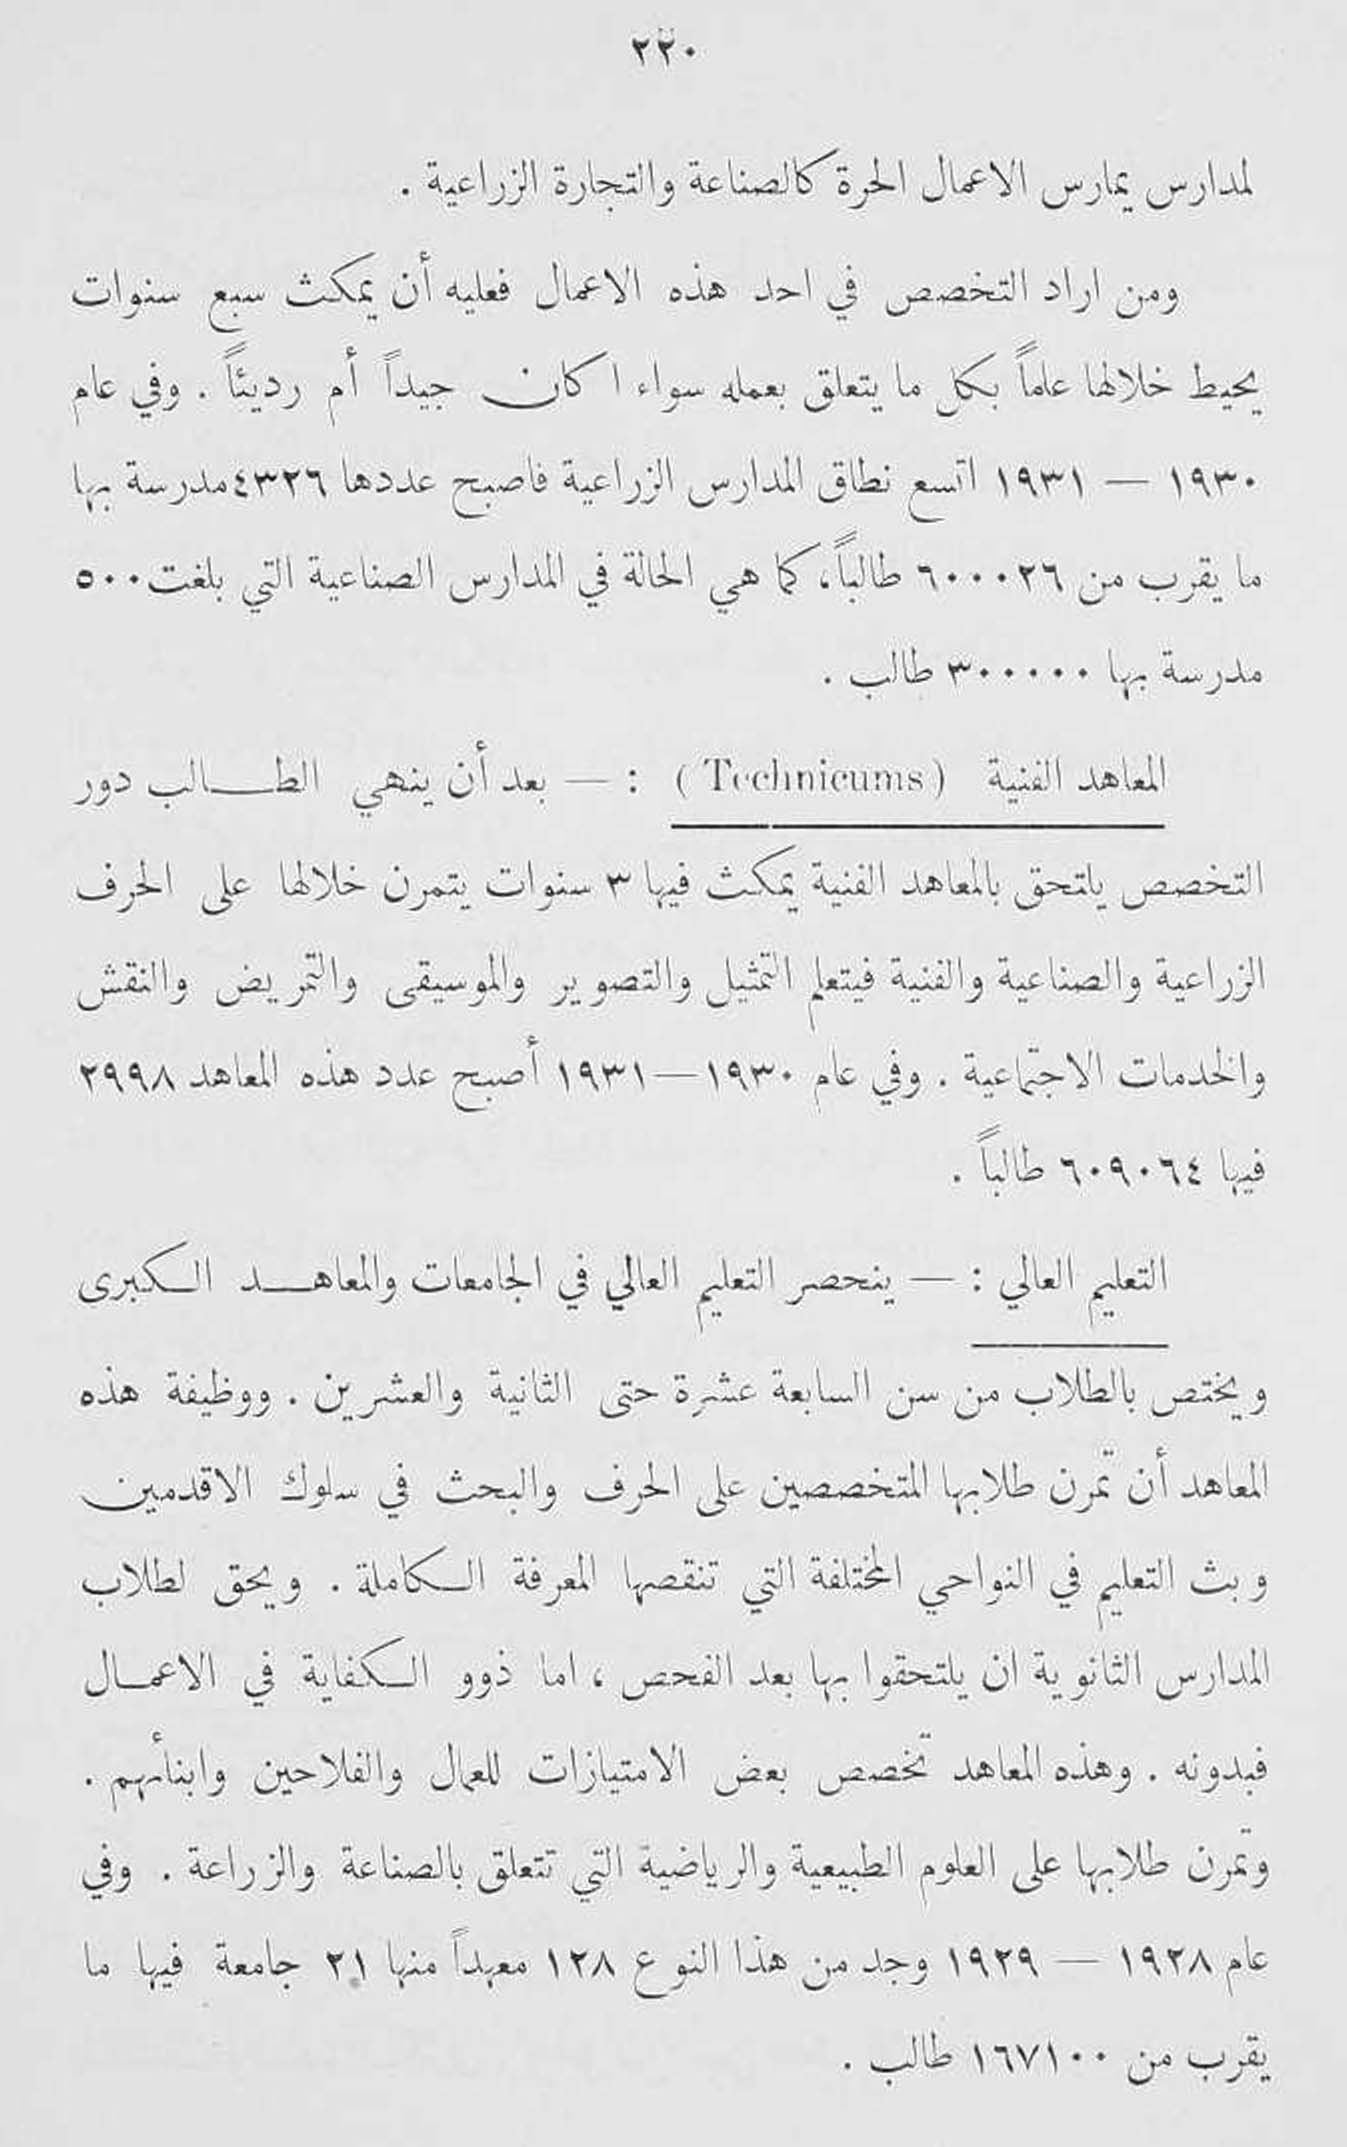 ٢٢٠
لمدارس يمارس الاعمال الحرة كالصناعة والتجارة الزراعية .
ومن اراد التخصص في احد هذه الاعمال فعليه أن يمكث سبع سنوات
يحيط خلالها علماً بكل ما يتعلق بعمله سواء اكان جيداً أم رديئاً . وفي عام
١٩٣٠ — ١٩٣١ اتسع نطاق المدارس الزراعية فاصبح عددها ٤٣٢٦ مدرسة بها
ما يقرب من ٦٠٠٠٢٦ طالباً ، كما هي الحالة في المدارس الصناعية التي بلغت ٥٠٠
مدرسة بها ٣٠٠٠٠٠ طالب .
المعاهد الفنية (Technicums) : — بعد أن ينهي الطالب دور
التخصص يلتحق بالمعاهد الفنية يمكث فيها ٣ سنوات يتمرن خلالها على الحرف
الزراعية والصناعية والفنية فيتعلم التمثيل والتصوير والموسيقى والتمريض والنقش
والخدمات الاجتماعية . وفي عام ١٩٣٠—١٩٣١ أصبح عدد هذه المعاهد ٢٩٩٨
فيها ٦٠٩٠٦٤ طالباً .
التعليم العالي : — ينحصر التعليم العالي في الجامعات والمعاهد الكبرى
ويختص بالطلاب من سن السابعة عشرة حتى الثانية والعشرين . ووظيفة هذه
المعاهد أن تمرن طلابها المتخصصين على الحرف والبحث في سلوك الاقدمين
وبث التعليم في النواحي المختلفة التي تنقصها المعرفة الكاملة . ويحق لطلاب
المدارس الثانوية ان يلتحقوا بها بعد الفحص ، اما ذوو الكفاية في الاعمال
فبدونه . وهذه المعاهد تخصص بعض الامتيازات للعمال والفلاحين وابنائهم .
وتمرن طلابها على العلوم الطبيعية والرياضية التي تتعلق بالصناعة والزراعة . وفي
عام ١٩٢٨ — ١٩٢٩ وجد من هذا النوع ١٢٨ معهداً منها ٢١ جامعة فيها ما
يقرب من ١٦٧١٠٠ طالب .